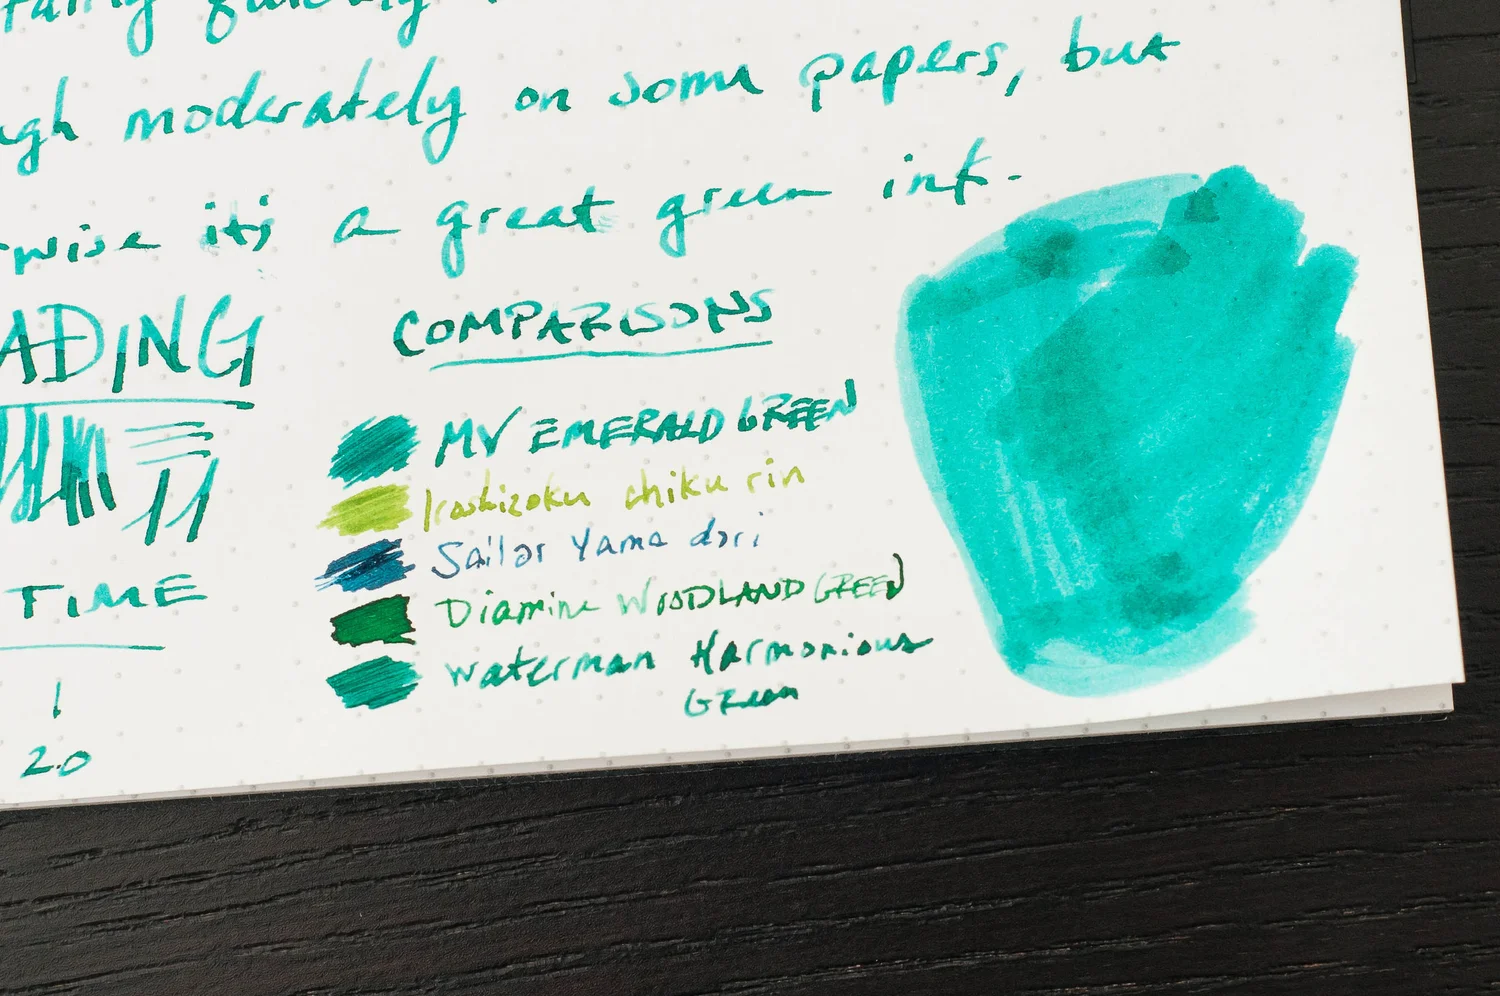 quickly
moderately on some papers, but
it's a great green ink.
ADING
COMPARISONS
MV EMERALD GREEN
Iroshizoku chiku rin
Sailor Yama dori
Diamine WOODLAND GREEN
Waterman Harmonious
Green
TIME
2.0